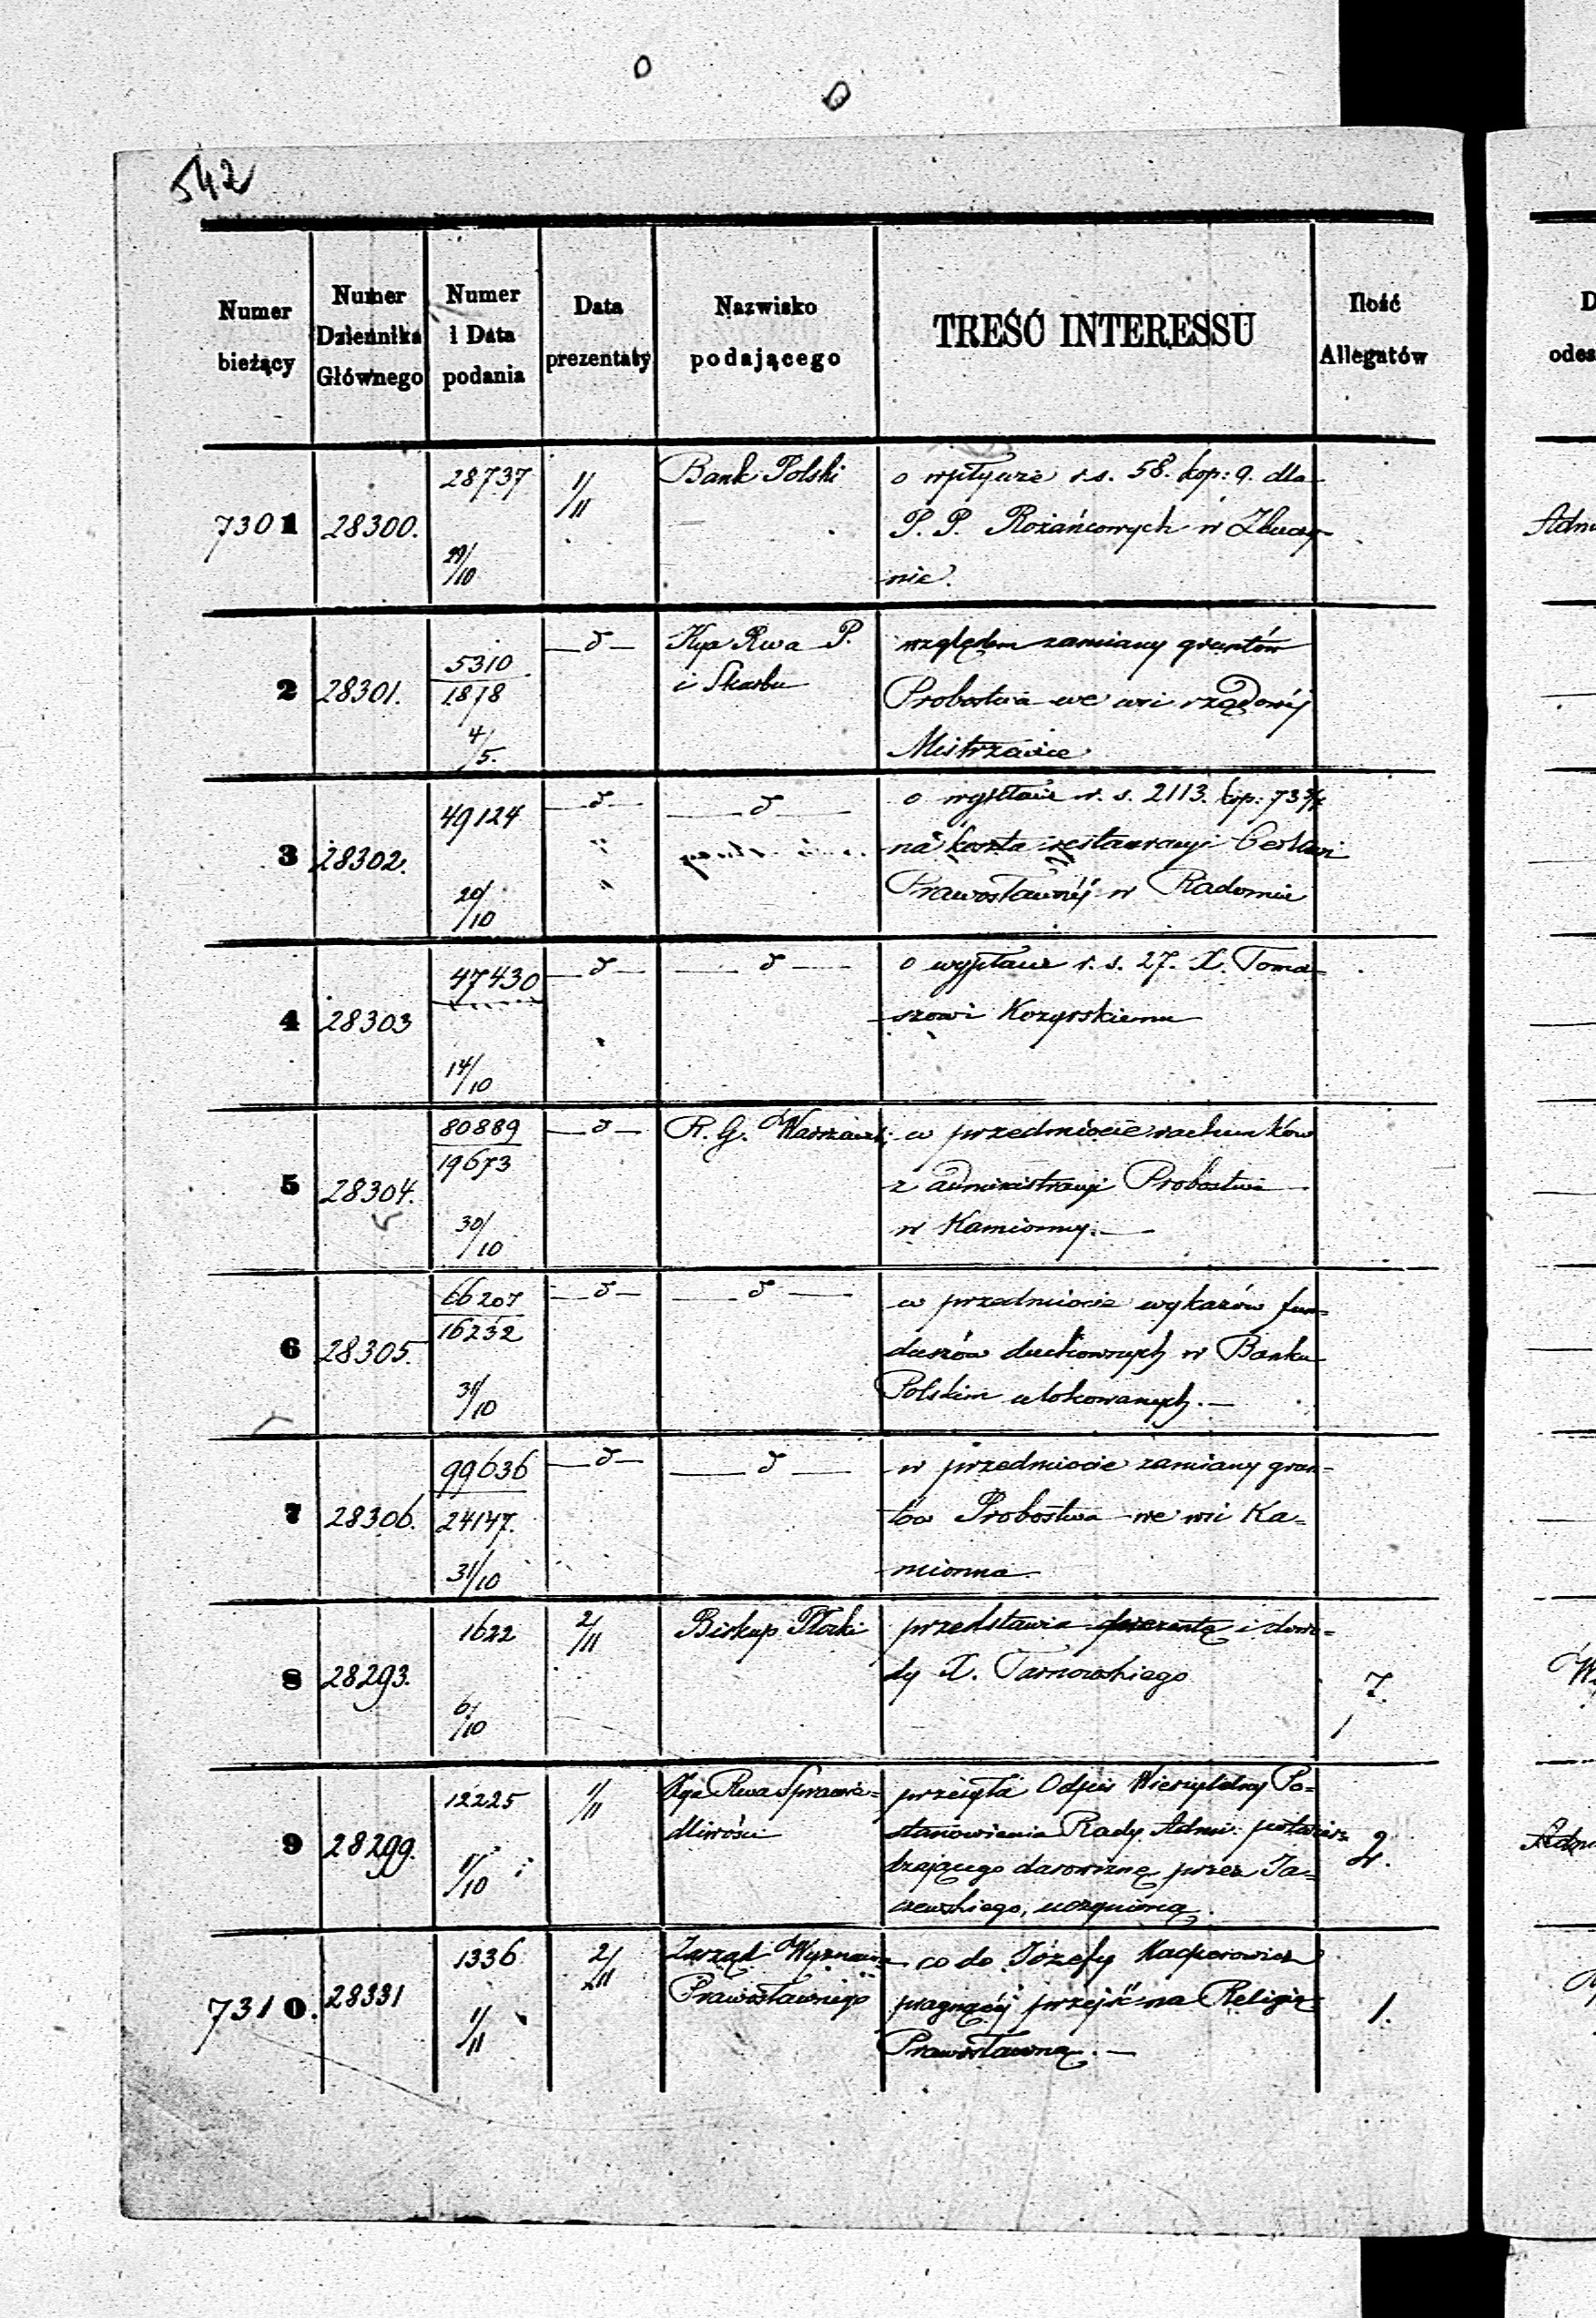 542
Numer bieżący
Numer Dziennika Głównego
Numer i Data podania
Data prezentaty
Nazwisko podającego
TREŚĆ INTERESSU
Ilość Allegatów
7301 28300. 28737 29/10 1/11 Bank Polski
o wpływie r.s. 58. kop: 9. dla
P. P. Rożańcowych w
nie.
2 28301. 5310 1878 4/5. —d— Kya Rwa P.
i Skarbu
względem zamiany gruntów
Probostwa we wsi rządowéj
3 28302. 49124 29/10 —d— —d—
o wypłacie r. s. 2113. kop: 73
na koszta restauracyi Cerkwi
Prawosławnéj w Radomiu
4 28303 47430 14/10 —d— —d—
o wypłacie r. s. 27. X. Toma=
szowi Kozyrskiemu
5 28304. 80889 19673 30/10 —d— R. G. Warszawski
w przedmiocie rachunków
z administracyi Probostwa
w Kamionny.—
6 28305. 66207 16232 31/10 —d— —d—
w przedmiocie wykazów fun=
duszów duchownych w Banku
Polskim ulokowanych.—
7 28306. 99636 24147. 31/10 —d— —d—
w przedmiocie zamiany grun=
tów Probostwa we wsi Ka=
mionna
8 28293. 1622 6/10 2/11 Biskup Płocki
przedstawia prezentę i dowo=
dy X. Tarnowskiego
7.
9 28299. 12225 /10 1/11 Kya Rwa Sprawie=
dliwości
przesyła Odpis Wierzytelny Po=
stanowienia Rady Admi: potwier=
dzającego darowiznę przez Ja=
czewskiego, uczynioną.
2.
7310. 28331 1336 1/11 2/11 Zarząd Wyznania
Prawosławnego
co do Józefy Kacperowicz
pragnącéj przejść na Religię
Prawosławną.—
1.